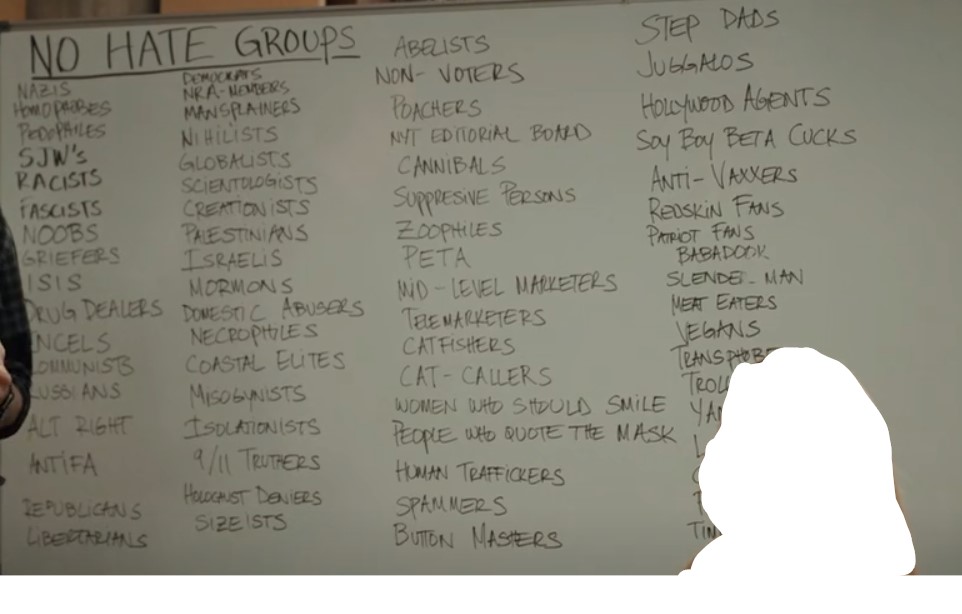 NO HATE GROUPS
NAZIS
HOMOPHOBES
PEDOPHILES
SJW's
RACISTS
FASCISTS
NOOBS
GRIEFERS
ISIS
DRUG DEALERS
INCELS
COMMUNISTS
RUSSIANS
ALT RIGHT
ANTIFA
REPUBLICANS
LIBERTARIANS
DEMOCRATS
NRA-MEMBERS
MANSPLAINERS
NIHILISTS
GLOBALISTS
SCIENTOLOGISTS
CREATIONISTS
PALESTINIANS
ISRAELIS
MORMONS
DOMESTIC ABUSERS
NECROPHILES
COASTAL ELITES
MISOGYNISTS
ISOLATIONISTS
9/11 TRUTHERS
HOLOCAUST DENIERS
SIZEISTS
ABELISTS
NON-VOTERS
POACHERS
NYT EDITORIAL BOARD
CANNIBALS
SUPPRESIVE PERSONS
ZOOPHILES
PETA
MID-LEVEL MARKETERS
TELEMARKETERS
CATFISHERS
CAT-CALLERS
WOMEN WHO SHOULD SMILE
PEOPLE WHO QUOTE THE MASK
HUMAN TRAFFICKERS
SPAMMERS
BUTTON MASHERS
STEP DADS
JUGGALOS
HOLLYWOOD AGENTS
SOY BOY BETA CUCKS
ANTI-VAXXERS
REDSKIN FANS
PATRIOT FANS
BABADOOK
SLENDER-MAN
MEAT EATERS
VEGANS
TRANSPHOBE
TROL
YAN
TIN